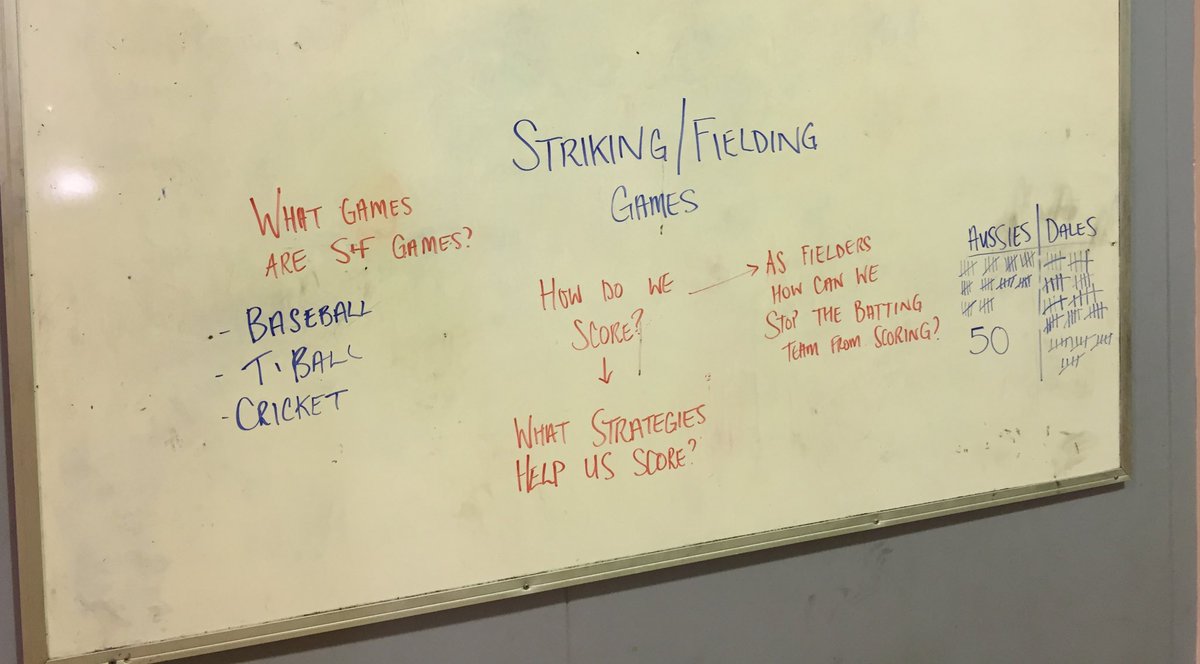 STRIKING/FIELDING
GAMES
WHAT GAMES
ARE S+F GAMES?
- BASEBALL
- T-BALL
- CRICKET
HOW DO WE
SCORE?
WHAT STRATEGIES
HELP US SCORE?
AS FIELDERS
HOW CAN WE
STOP THE BATTING
TEAM FROM SCORING?
AUSSIES | DALES
50